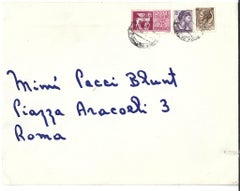 Mimì Pecci Blunt
Piazza Aracoeli 3
Roma